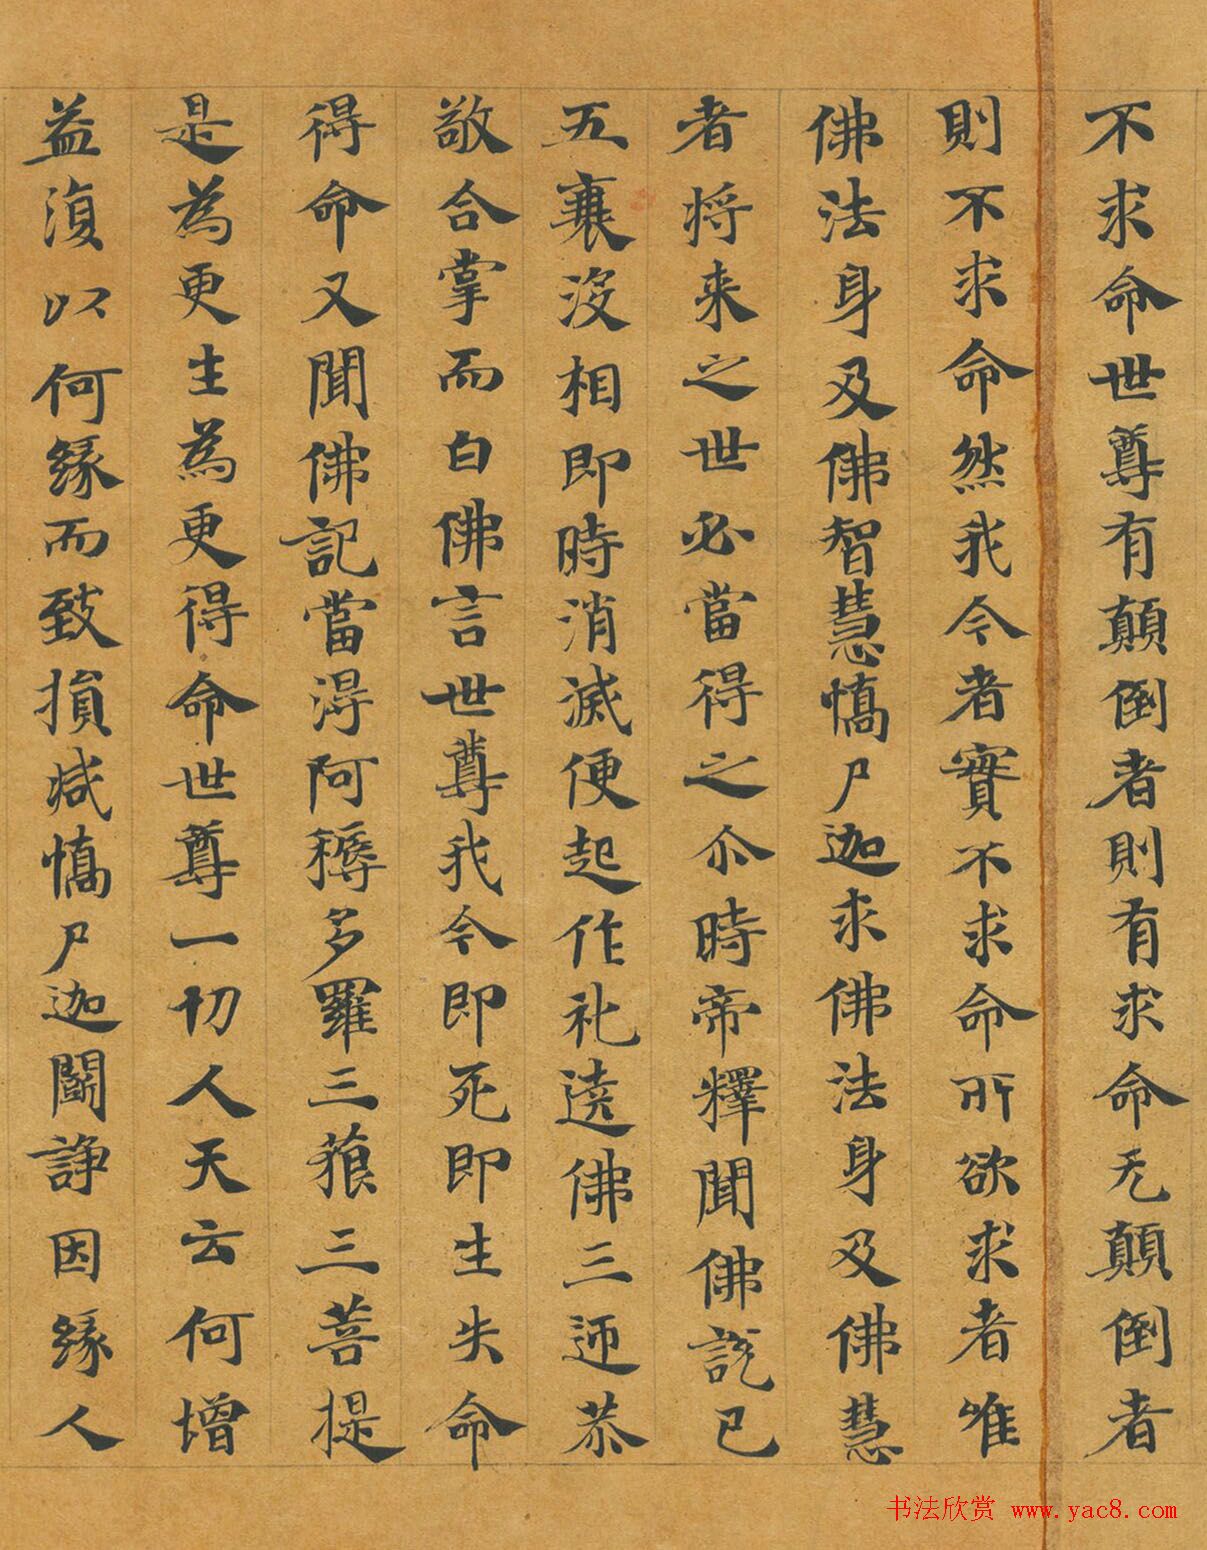 不求命世尊有顛倒者則有求命无顛倒者
則不求命然我今者實不求命所欲求者唯
佛法身及佛智慧憍尸迦求佛法身及佛慧
者將来之世必當得之尒時帝釋聞佛說已
五衰没相即時消滅便起作礼遶佛三迊恭
敬合掌而白佛言世尊我今即死即生失命
得命又聞佛記當淂阿耨多羅三藐三菩提
是為更生為更得命世尊一切人天云何增
益復以何緣而致損减憍尸迦鬪諍因緣人
书法欣赏 www.yac8.com